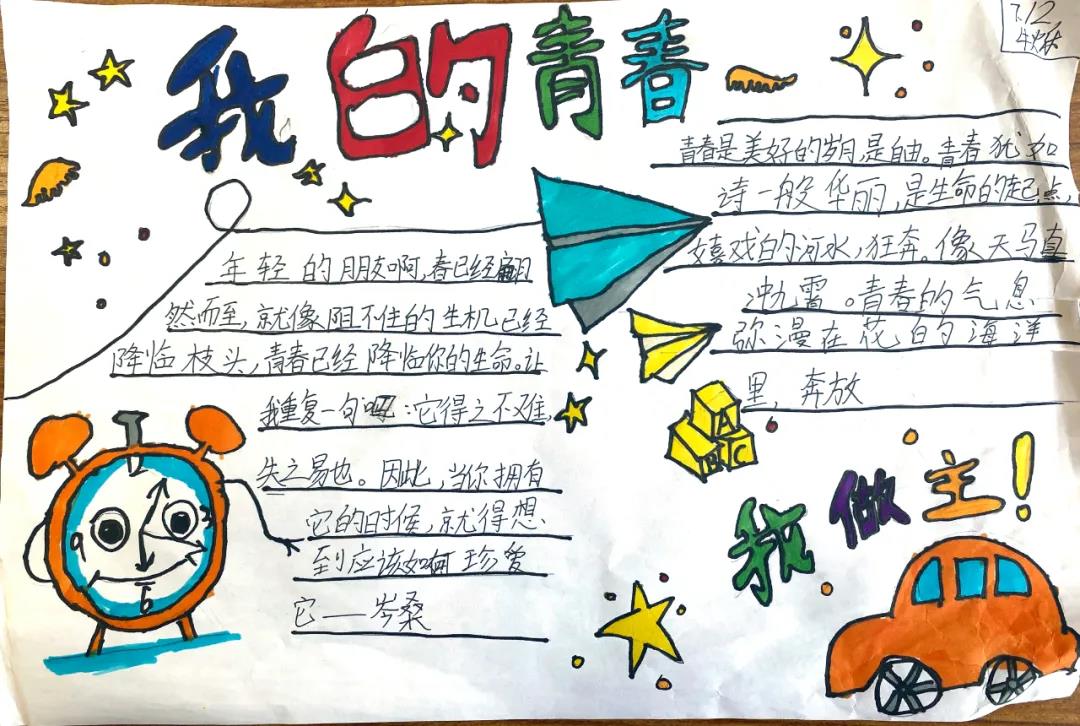 我的青春
7.12
年轻的朋友啊,春已经翩
然而至,就像阻不住的生机已经
降临枝头,青春已经降临你的生命。让
我重复一句吧:它得之不难
失之易也。因此,当你拥有
它的时候,就得想
到应该如何珍爱
它——岑桑
青春是美好的岁月,是自由。青春犹如
诗一般华丽,是生命的起点,
嬉戏的河水,狂奔。像天马直
冲九霄。青春的气息
弥漫在花的海洋
里,奔放
A
B C
我做主!
12
2
9
6